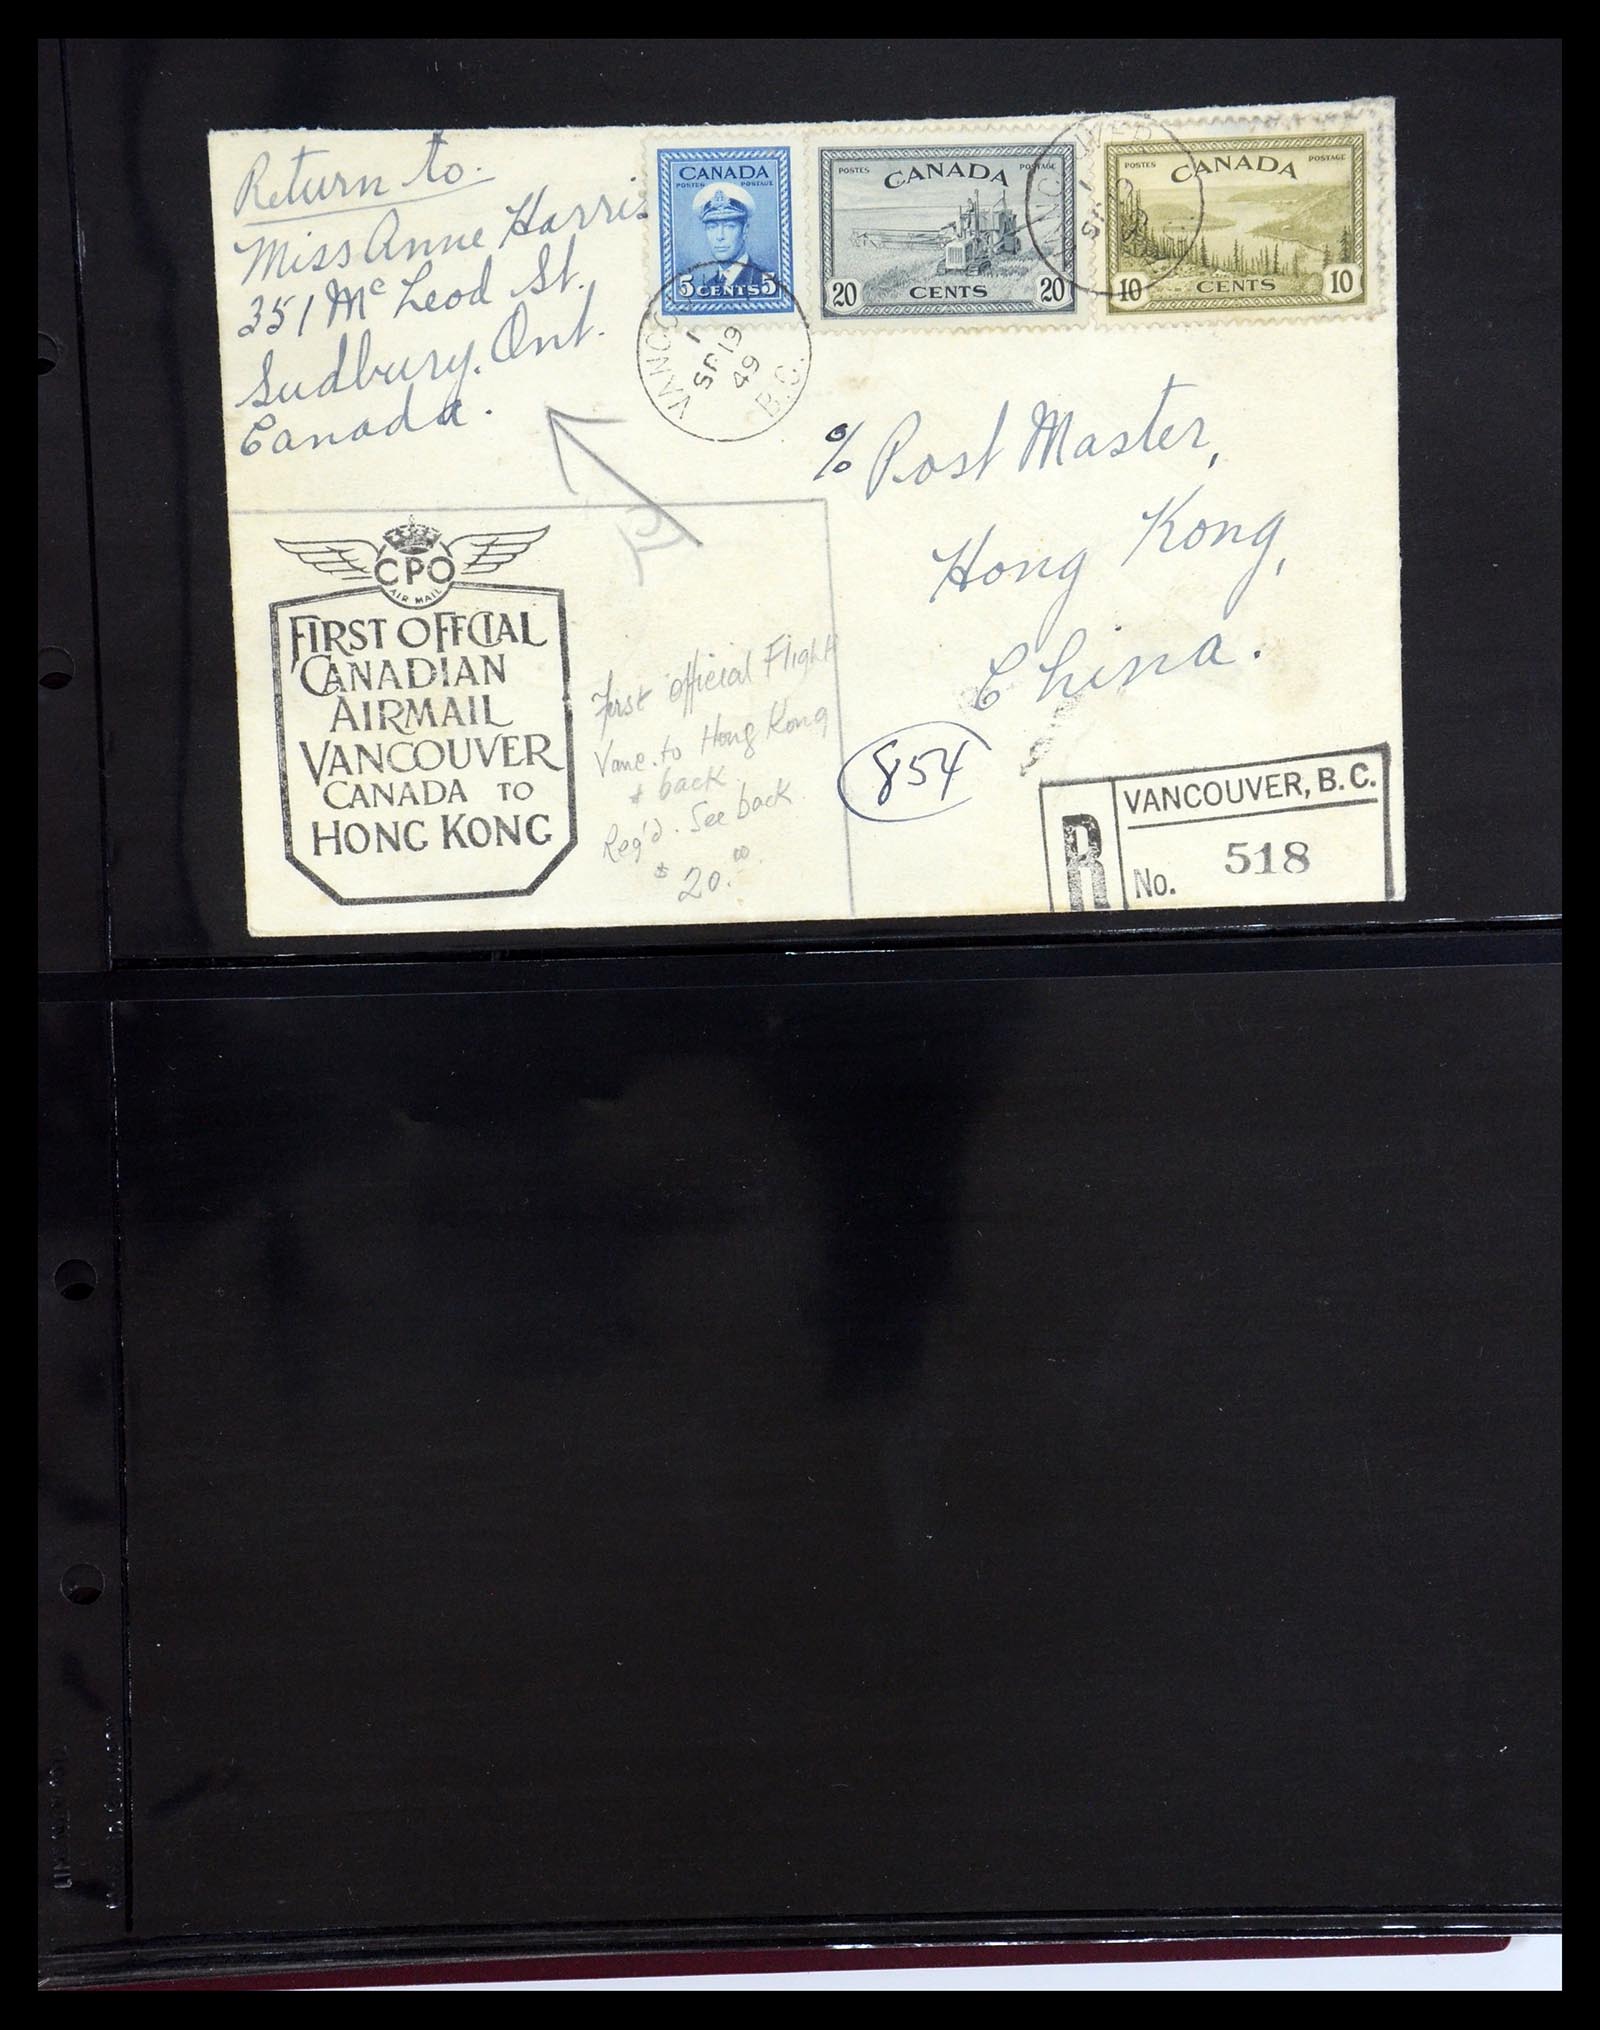 Return to.
Miss Anne Harris
351 Mc Leod St.
Sudbury. Ont.
Canada.
CANADA
POSTES POSTAGE
5 CENTS 5
POSTES CANADA POSTAGE
20 CENTS 20
POSTES CANADA POSTAGE
10 CENTS 10
VANCOUVER
1
SP 19
49
B.C.
VANCOUVER
1
% Post Master,
Hong Kong,
China.
CPO
AIR MAIL
FIRST OFFCIAL
CANADIAN
AIRMAIL
VANCOUVER
CANADA TO
HONG KONG
First official Flight
Vanc. to Hong Kong
& back
Reg'd. See back.
$20.00
854
R
VANCOUVER, B.C.
No. 518